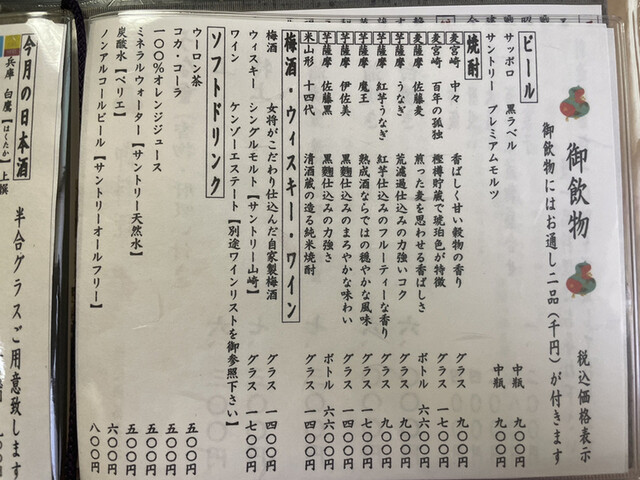 御飲物
税込価格表示
御飲物にはお通し二品(千円)が付きます
ビール
サッポロ 黒ラベル 中瓶 九〇〇円
サントリー プレミアムモルツ 中瓶 九〇〇円
焼酎
麦 宮崎 中々 香ばしく甘い穀物の香り グラス 九〇〇円
麦 宮崎 百年の孤独 樫樽貯蔵で琥珀色が特徴 グラス 一七〇〇円
麦 薩摩 佐藤麦 煎った麦を思わせる香ばしさ ボトル 六六〇〇円
芋 薩摩 うなぎ 荒濾過仕込みの力強いコク グラス 九〇〇円
芋 薩摩 紅芋うなぎ 紅芋仕込みのフルーティーな香り グラス 九〇〇円
芋 薩摩 魔王 熟成酒ならではの穏やかな風味 グラス 一七〇〇円
芋 薩摩 伊佐美 黒麹仕込みのまろやかな味わい グラス 一四〇〇円
芋 薩摩 佐藤黒 黒麹仕込みの力強さ ボトル 六六〇〇円
米 山形 十四代 清酒蔵の造る純米焼酎 グラス 一四〇〇円
梅酒・ウィスキー・ワイン
梅酒 女将がこだわり仕込んだ自家製梅酒 グラス 一四〇〇円
ウィスキー シングルモルト【サントリー山崎】 グラス 一七〇〇円
ワイン ケンゾーエステート【別途ワインリストを御参照下さい】
ソフトドリンク
ウーロン茶 五〇〇円
コカ・コーラ 五〇〇円
100%オレンジジュース 五〇〇円
ミネラルウォーター【サントリー天然水】 五〇〇円
炭酸水【ペリエ】 六〇〇円
ノンアルコールビール【サントリーオールフリー】 八〇〇円
今月の日本酒
半合グラスご用意致します
兵庫 白鷹【はくたか】上撰